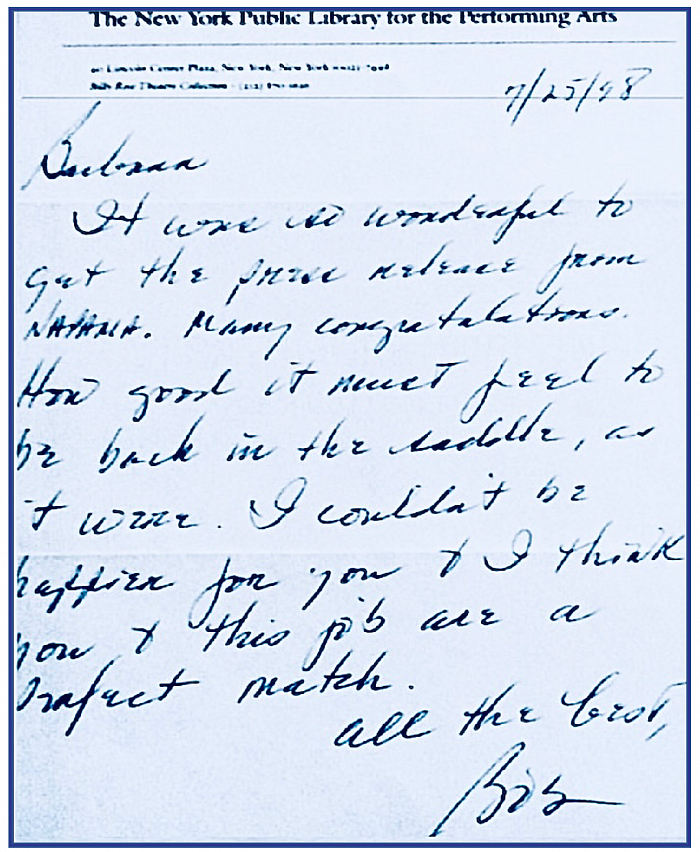 The New York Public Library for the Performing Arts
40 Lincoln Center Plaza, New York, New York 10023-7498
Billy Rose Theatre Collection - (212) 870-
7/25/98
Barbara
It was so wonderful to
get the press release from
NAPAMA. Many congratulations.
How good it must feel to
be back in the saddle, as
it were. I couldn't be
happier for you & I think
you & this job are a
perfect match.
all the best,
Bob